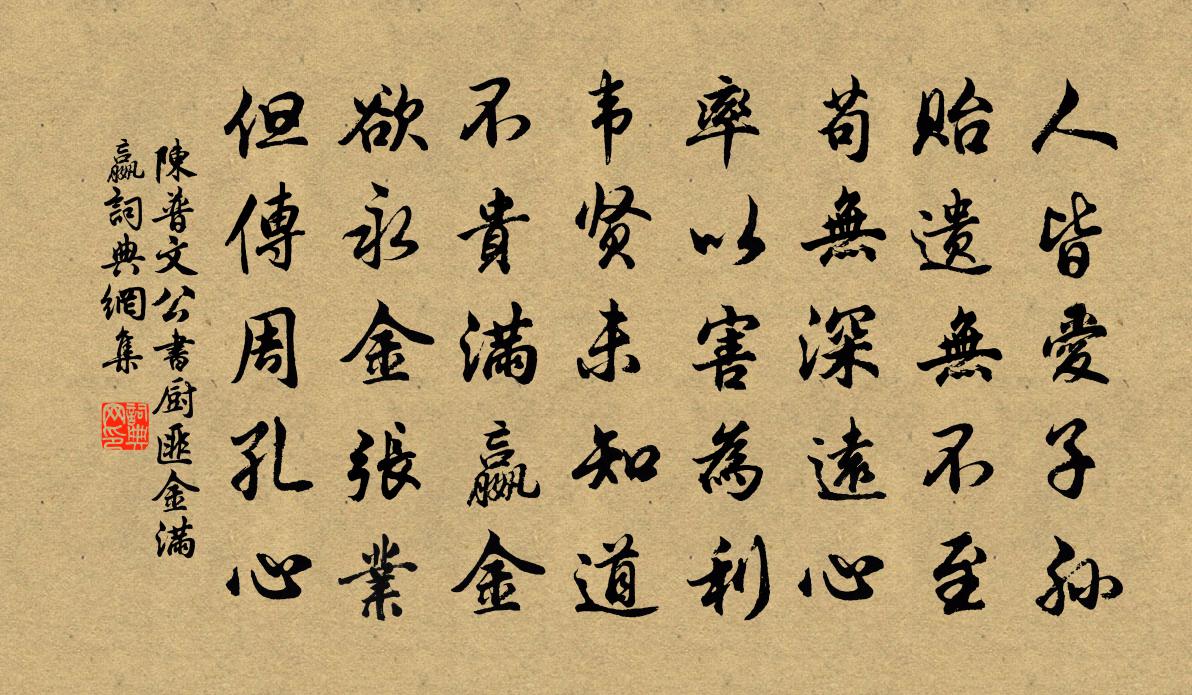 人皆愛子孙
貽遗無不至
苟無深遠心
率以害為利
韦贤未知道
不貴满贏金
欲永金張業
但傳周孔心
陳普文公書厨匪金满
贏詞典網集
詞典网印